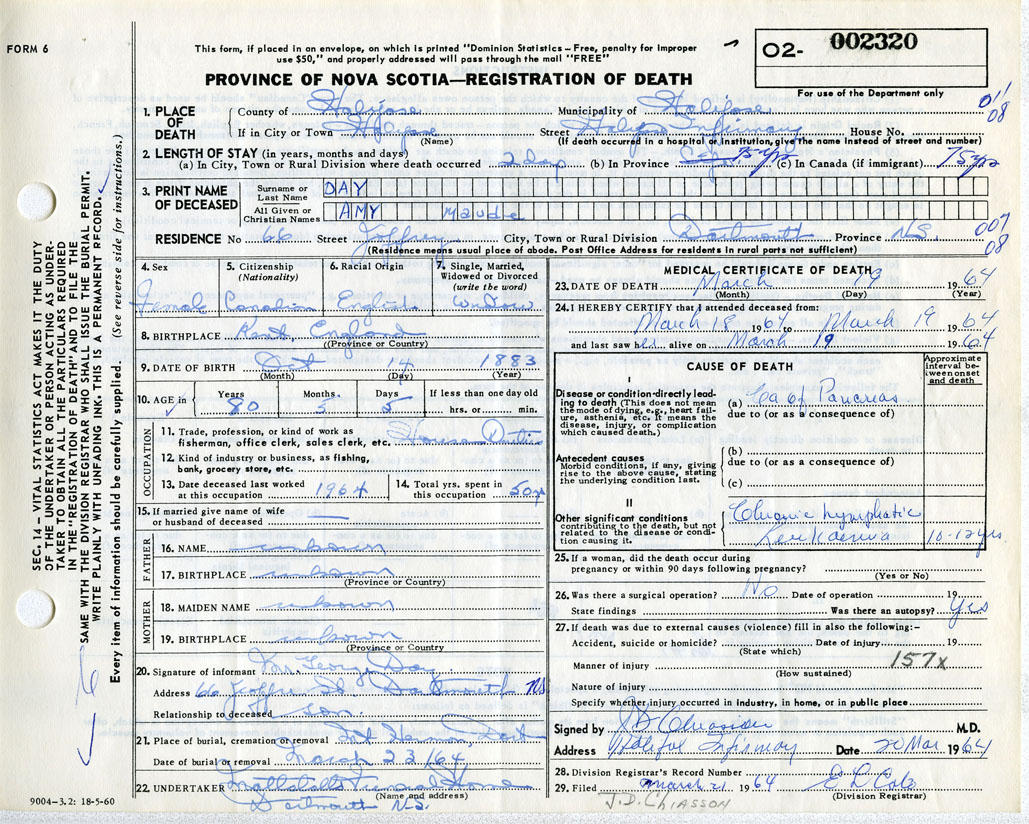 FORM 6
This form, if placed in an envelope, on which is printed "Dominion Statistics – Free, penalty for improper
use $50," and properly addressed will pass through the mail "FREE"
PROVINCE OF NOVA SCOTIA—REGISTRATION OF DEATH
O2- 002320
For use of the Department only
011
08
1. PLACE OF DEATH
County of Halifax Municipality of Halifax
If in City or Town Halifax Street Halifax Infirmary House No.
(Name) (If death occurred in a hospital or institution, give the name instead of street and number)
2. LENGTH OF STAY (in years, months and days)
(a) In City, Town or Rural Division where death occurred 2 days (b) In Province 75 yrs (c) In Canada (if immigrant) 75 yrs
3. PRINT NAME OF DECEASED
Surname or Last Name DAY
All Given or Christian Names AMY Maudie
RESIDENCE No 66 Street Joffrey City, Town or Rural Division Dartmouth Province N.S.
007
08
(Residence means usual place of abode. Post Office Address for residents in rural parts not sufficient)
4. Sex
Female
5. Citizenship
(Nationality)
Canadian
6. Racial Origin
English
7. Single, Married,
Widowed or Divorced
(write the word)
Widow
8. BIRTHPLACE Kent, England
(Province or Country)
9. DATE OF BIRTH Oct 14 1883
(Month) (Day) (Year)
10. AGE in Years 80 Months 5 Days 5 If less than one day old
hrs. or min.
OCCUPATION
11. Trade, profession, or kind of work as
fisherman, office clerk, sales clerk, etc. House Duties
12. Kind of industry or business, as fishing,
bank, grocery store, etc.
13. Date deceased last worked
at this occupation 1964
14. Total yrs. spent in
this occupation 50 yr
15. If married give name of wife
or husband of deceased —
FATHER
16. NAME unknown
17. BIRTHPLACE unknown
(Province or Country)
MOTHER
18. MAIDEN NAME unknown
19. BIRTHPLACE unknown
(Province or Country)
20. Signature of informant George Day
Address 66 Joffre St Dartmouth NS
Relationship to deceased son.
21. Place of burial, cremation or removal Mt Hermon, Dart
Date of burial or removal March 23/64
22. UNDERTAKER Mattatalls Funeral Home
(Name and address)
Dartmouth N.S.
9004–3.2: 18-5-60
MEDICAL CERTIFICATE OF DEATH
23. DATE OF DEATH March 19 1964
(Month) (Day) (Year)
24. I HEREBY CERTIFY that I attended deceased from:
March 18 1964 to March 19 1964
and last saw her alive on March 19 1964
CAUSE OF DEATH
Approximate
interval be-
tween onset
and death
I
Disease or condition directly lead-
ing to death (This does not mean
the mode of dying, e.g., heart fail-
ure, asthenia, etc. It means the
disease, injury, or complication
which caused death.)
(a) Ca of Pancreas
due to (or as a consequence of)
Antecedent causes
Morbid conditions, if any, giving
rise to the above cause, stating
the underlying condition last.
(b)
due to (or as a consequence of)
(c)
II
Other significant conditions
contributing to the death, but not
related to the disease or condi-
tion causing it.
Chronic Lymphatic
Leukaemia 10-12 yrs.
25. If a woman, did the death occur during
pregnancy or within 90 days following pregnancy?
(Yes or No)
26. Was there a surgical operation? No Date of operation 19
State findings Was there an autopsy? Yes
27. If death was due to external causes (violence) fill in also the following:–
Accident, suicide or homicide? Date of injury 19
(State which)
Manner of injury 157x
(How sustained)
Nature of injury
Specify whether injury occurred in industry, in home, or in public place
Signed by J D Chiasson M.D.
Address Halifax Infirmary Date 20 Mar 1964
28. Division Registrar's Record Number
29. Filed March 21 1964
(Division Registrar)
J.D. CHIASSON
SEC. 14 – VITAL STATISTICS ACT MAKES IT THE DUTY
OF THE UNDERTAKER OR PERSON ACTING AS UNDER-
TAKER TO OBTAIN ALL THE PARTICULARS REQUIRED
IN THE "REGISTRATION OF DEATH" AND TO FILE THE
SAME WITH THE DIVISION REGISTRAR WHO SHALL ISSUE THE BURIAL PERMIT.
WRITE PLAINLY WITH UNFADING INK. THIS IS A PERMANENT RECORD.
Every item of information should be carefully supplied. (See reverse side for instructions.)